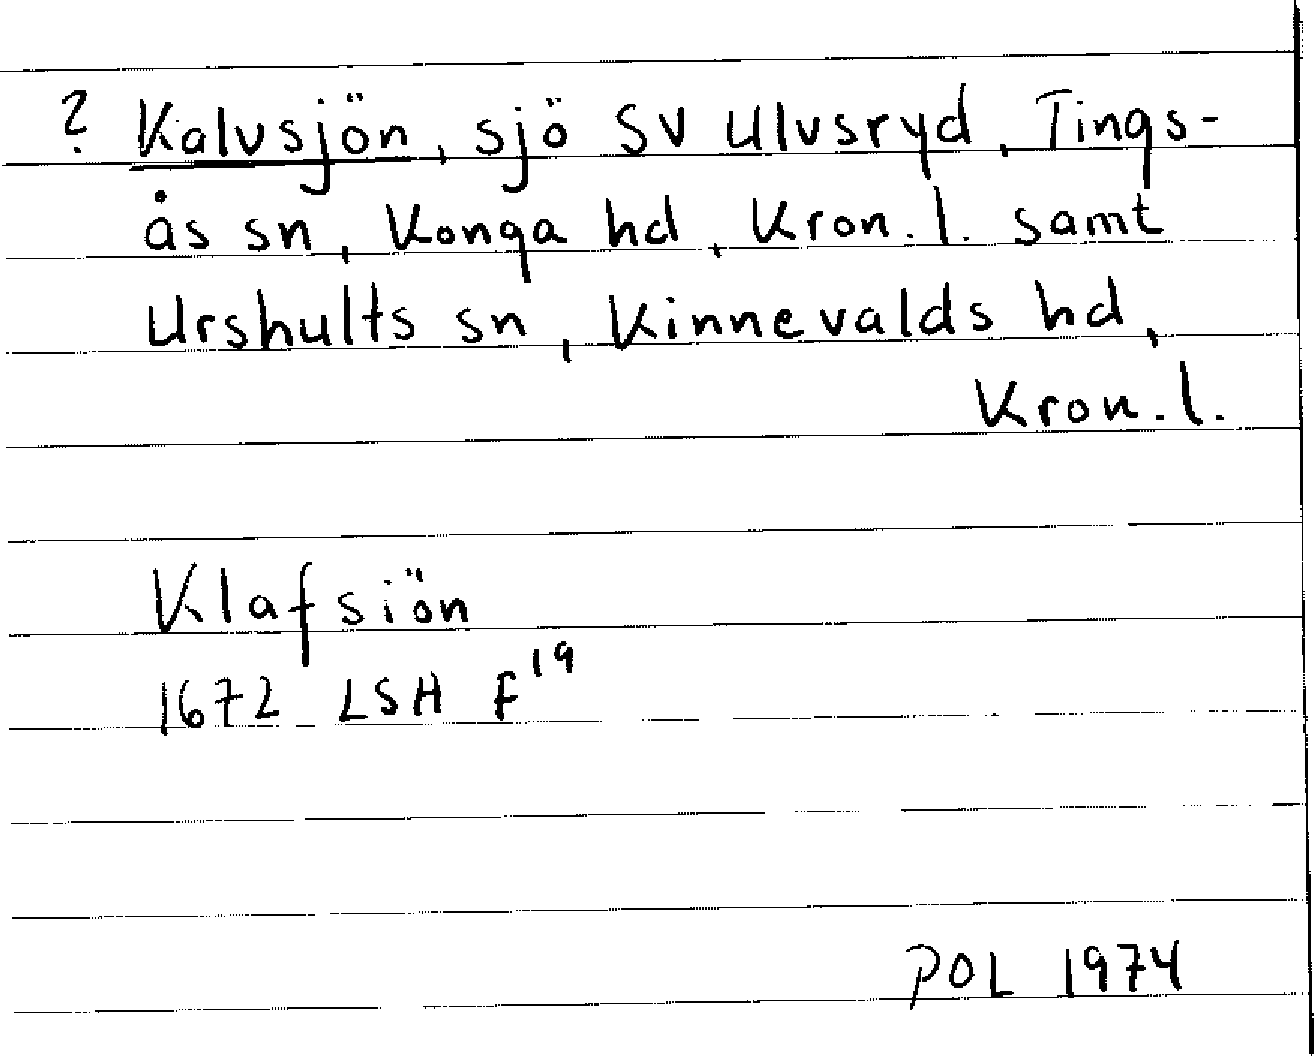 ? Kalvsjön, sjö SV Ulvsryd, Tings-
ås sn, Konga hd, Kron. l. samt
Urshults sn, Kinnevalds hd,
Kron. l.
Klafsiön
1672 LSH F¹⁹
POL 1974